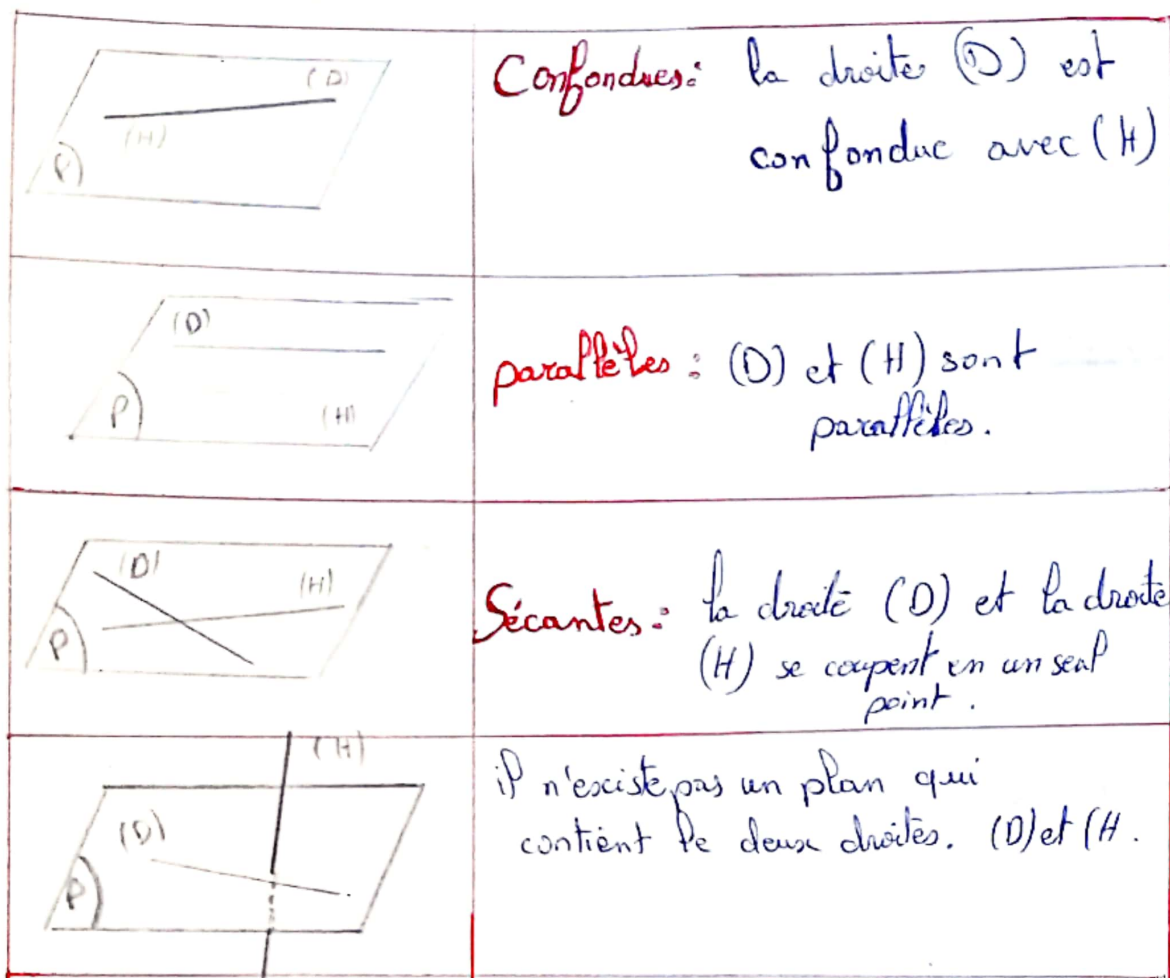 (D)
(H)
P)
Confondues: la droite (D) est
confondue avec (H)
(D)
P)
(H)
parallèles : (D) et (H) sont
parallèles.
(D)
(H)
P)
Sécantes : la droite (D) et la droite
(H) se coupent en un seul
point.
(H)
(D)
P)
il n'existe pas un plan qui
contient le deux droites. (D) et (H.